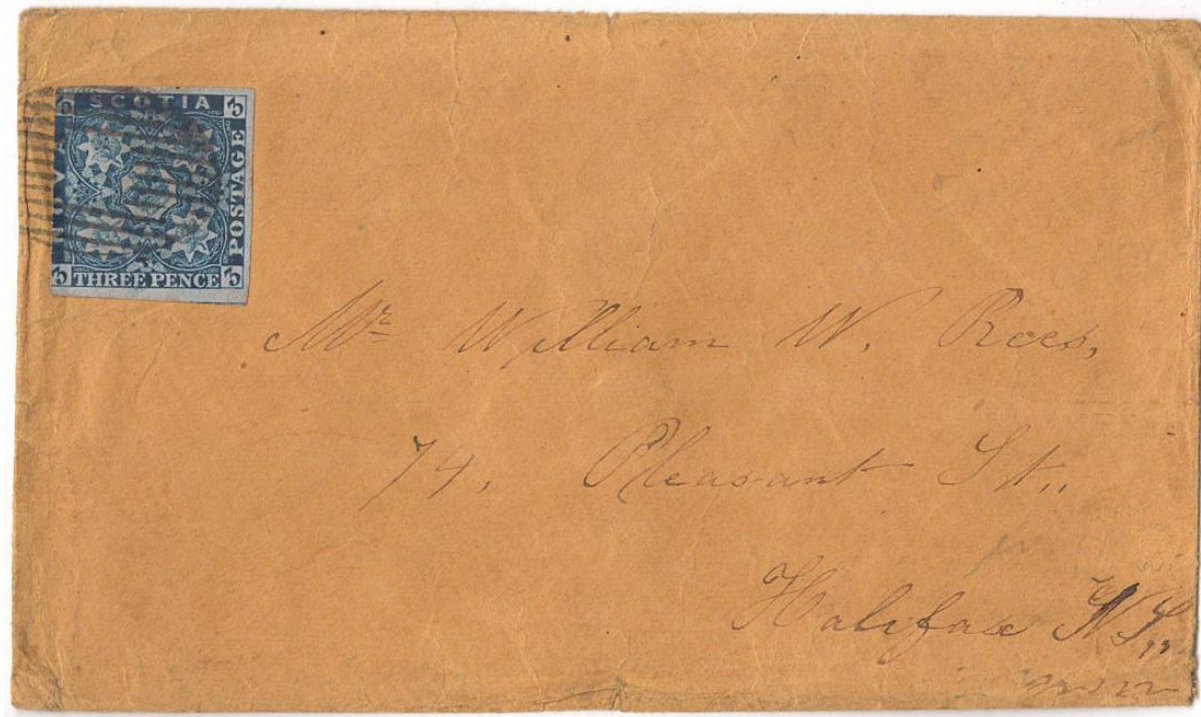 SCOTIA
POSTAGE
THREE PENCE
3
3
3
Mr William W. Rees,
74, Pleasant St.,
Halifax N.S.,